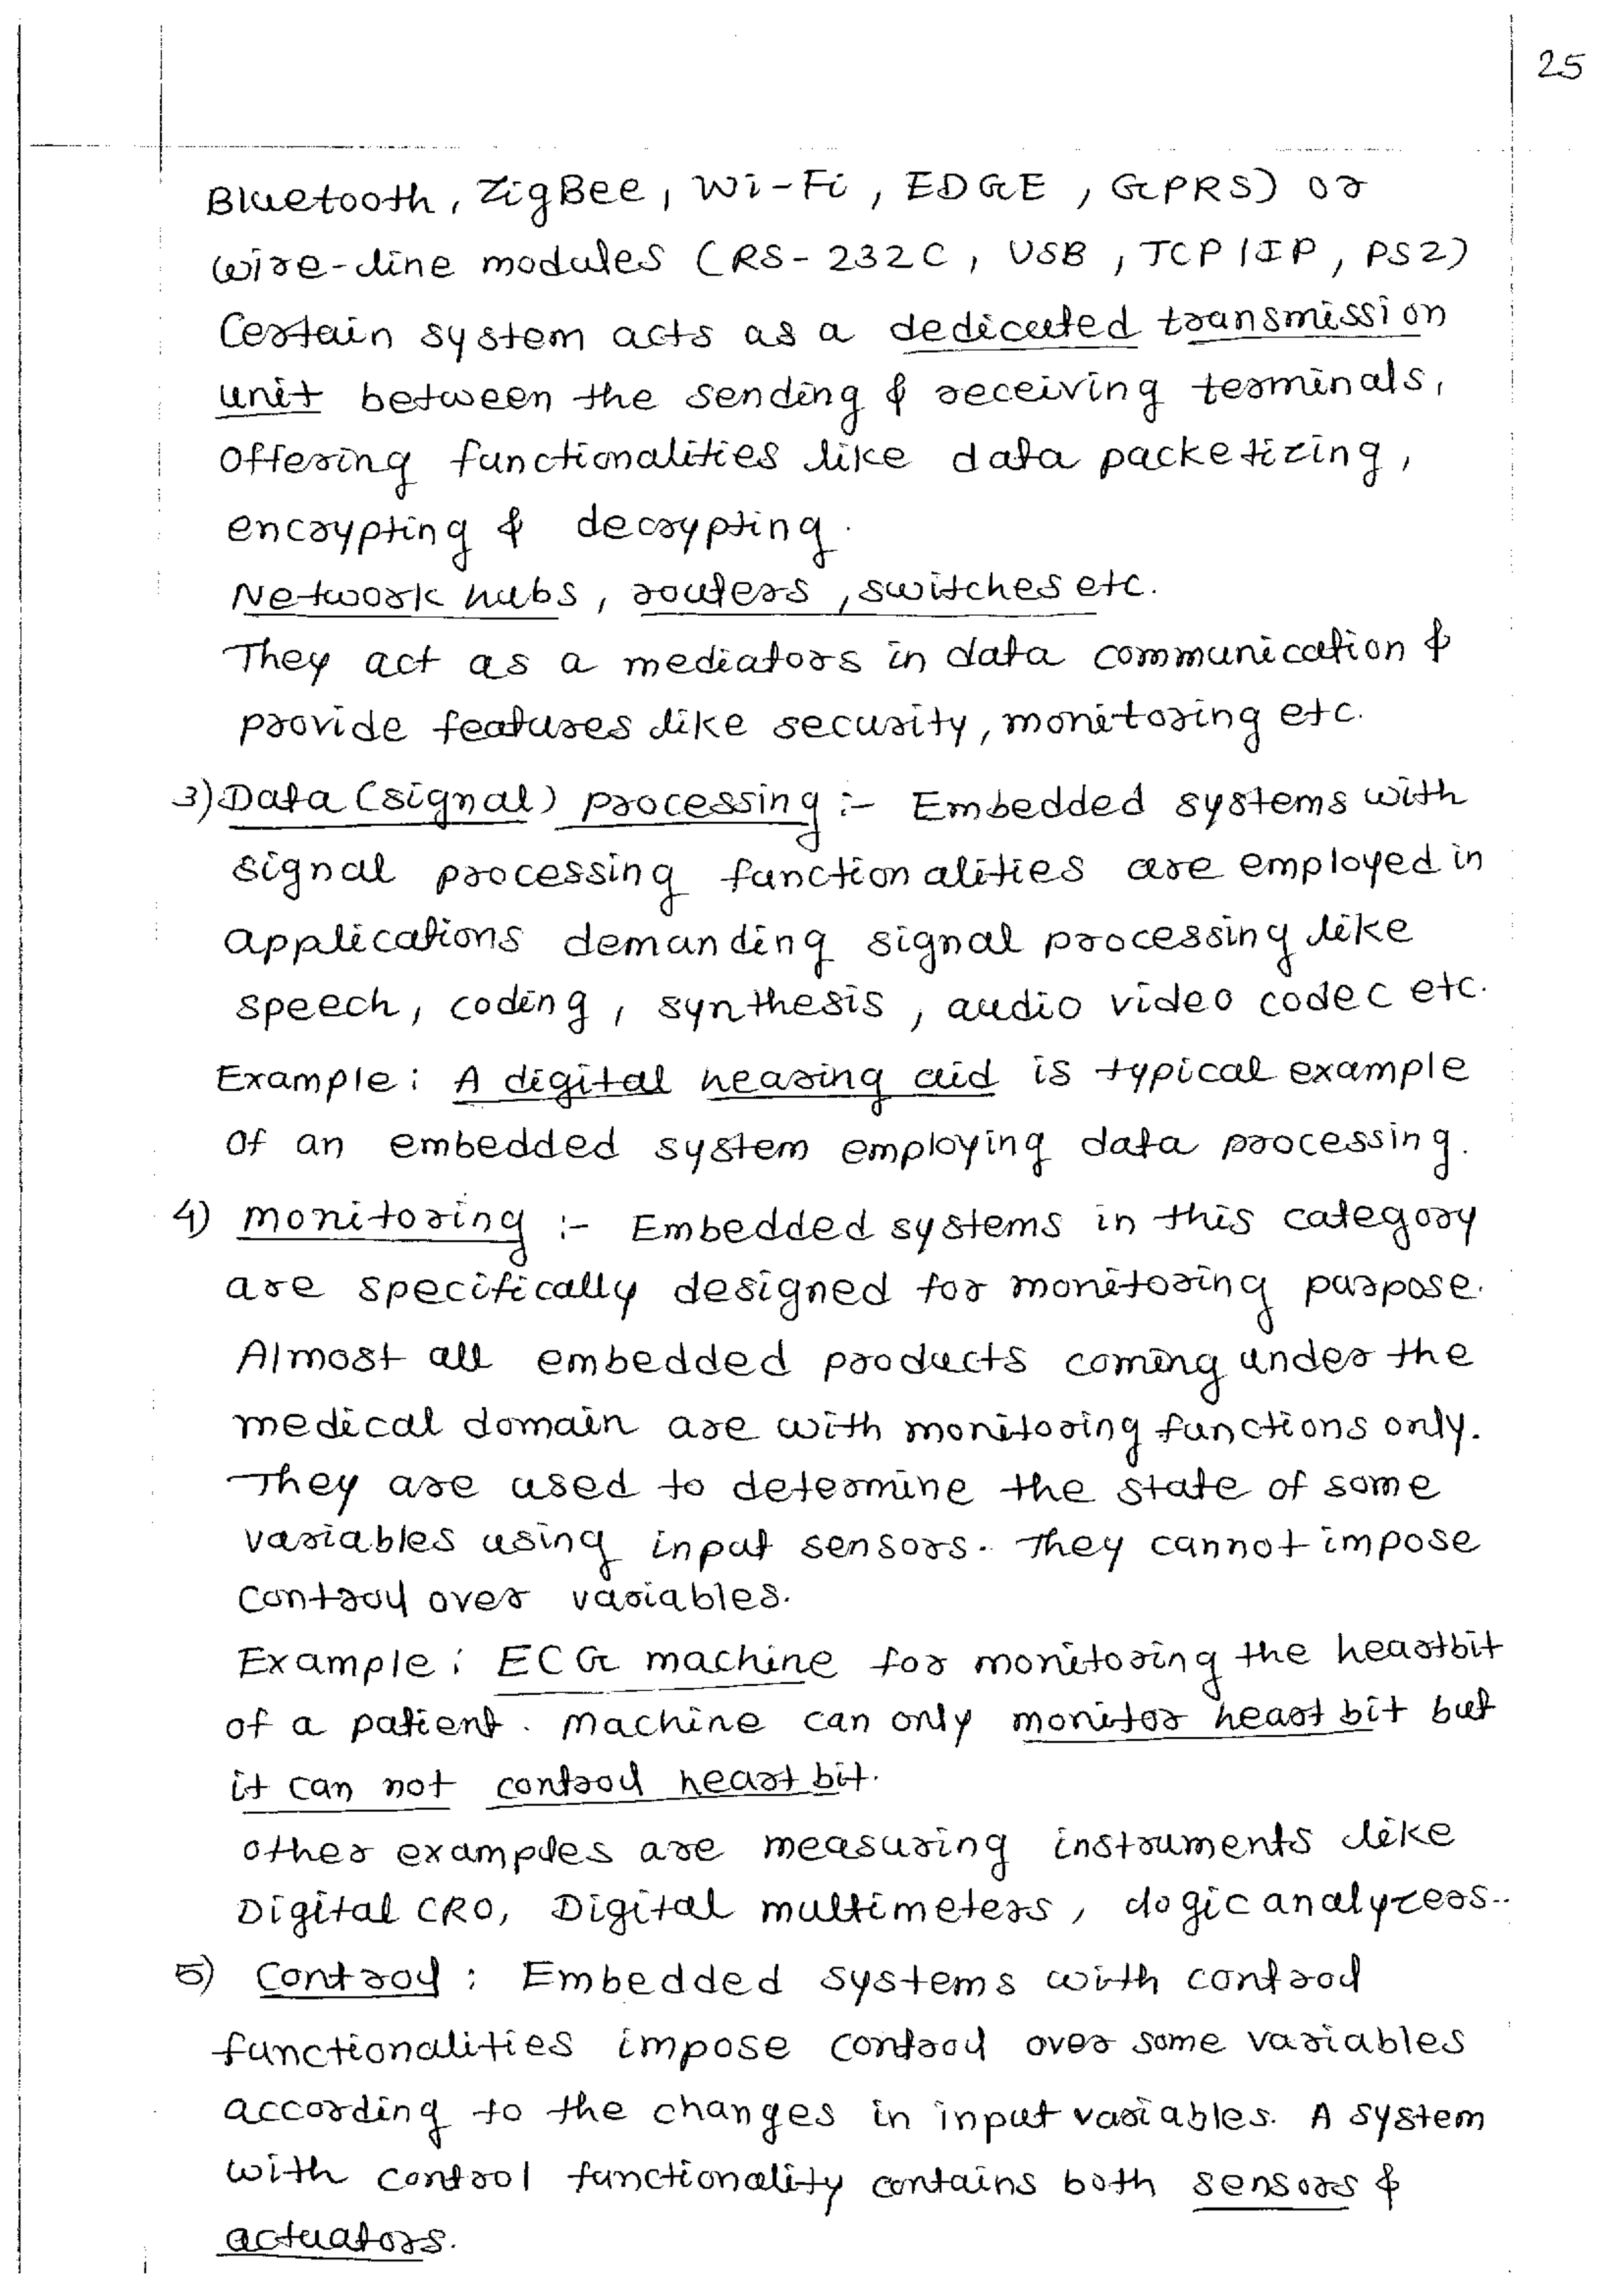 25
Bluetooth, ZigBee, Wi-Fi, EDGE, GPRS) or
wire-line modules (RS-232C, USB, TCP/IP, PS2)
Certain system acts as a dedicated transmission
unit between the sending & receiving terminals,
offering functionalities like data packetizing,
encrypting & decrypting.
Network hubs, routers, switches etc.
They act as a mediators in data communication &
provide features like security, monitoring etc.
3) Data (signal) processing :- Embedded systems with
signal processing functionalities are employed in
applications demanding signal processing like
speech, coding, synthesis, audio video codec etc.
Example: A digital hearing aid is typical example
of an embedded system employing data processing.
4) monitoring :- Embedded systems in this category
are specifically designed for monitoring purpose.
Almost all embedded products coming under the
medical domain are with monitoring functions only.
They are used to determine the state of some
variables using input sensors. They cannot impose
control over variables.
Example: ECG machine for monitoring the heartbit
of a patient. Machine can only monitor heart bit but
it can not control heart bit.
other examples are measuring instruments like
Digital CRO, Digital multimeters, logic analyzers..
5) Control : Embedded systems with control
functionalities impose control over some variables
according to the changes in input variables. A system
with control functionality contains both sensors &
actuators.